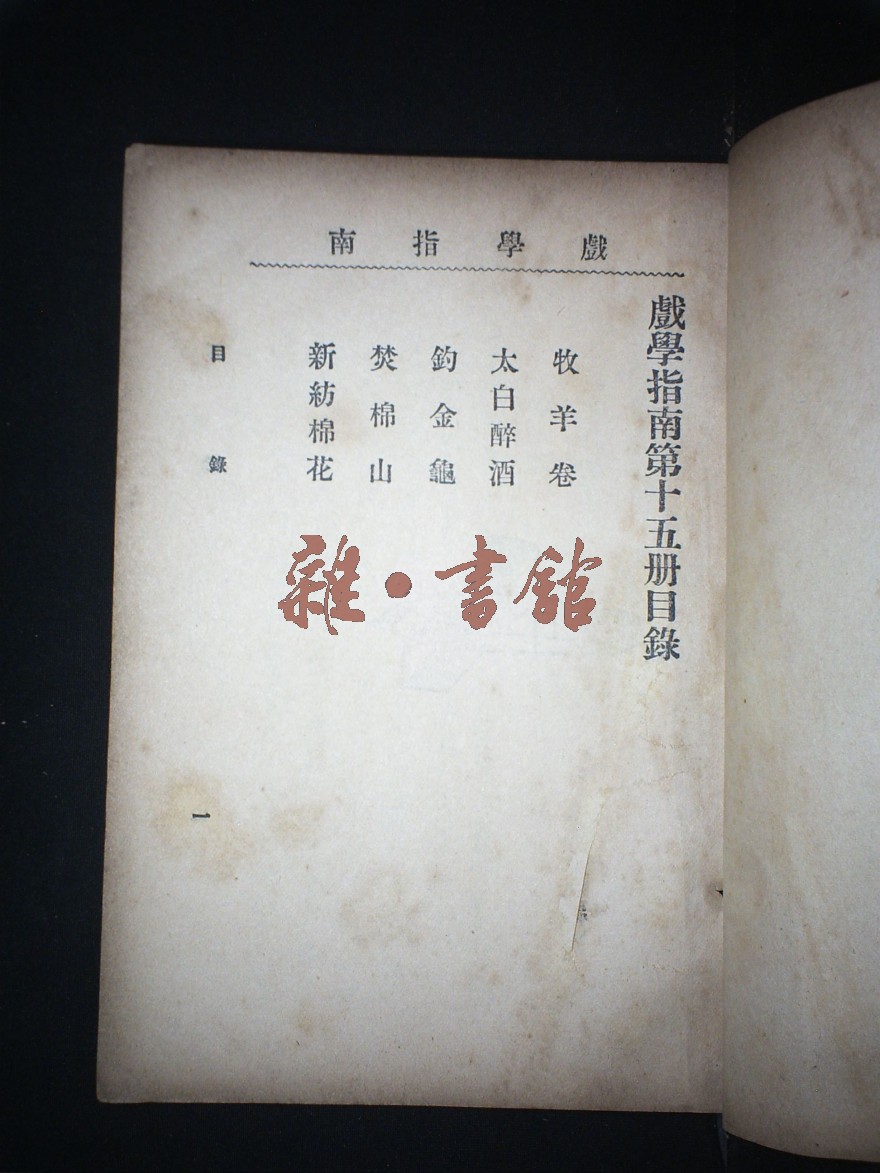 戲學指南
戲學指南第十五册目錄
牧羊卷
太白醉酒
釣金龜
焚棉山
新紡棉花
目錄
一
雜·書館